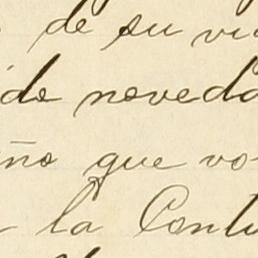 de su vi
do noveda
ño que vo
la Contu